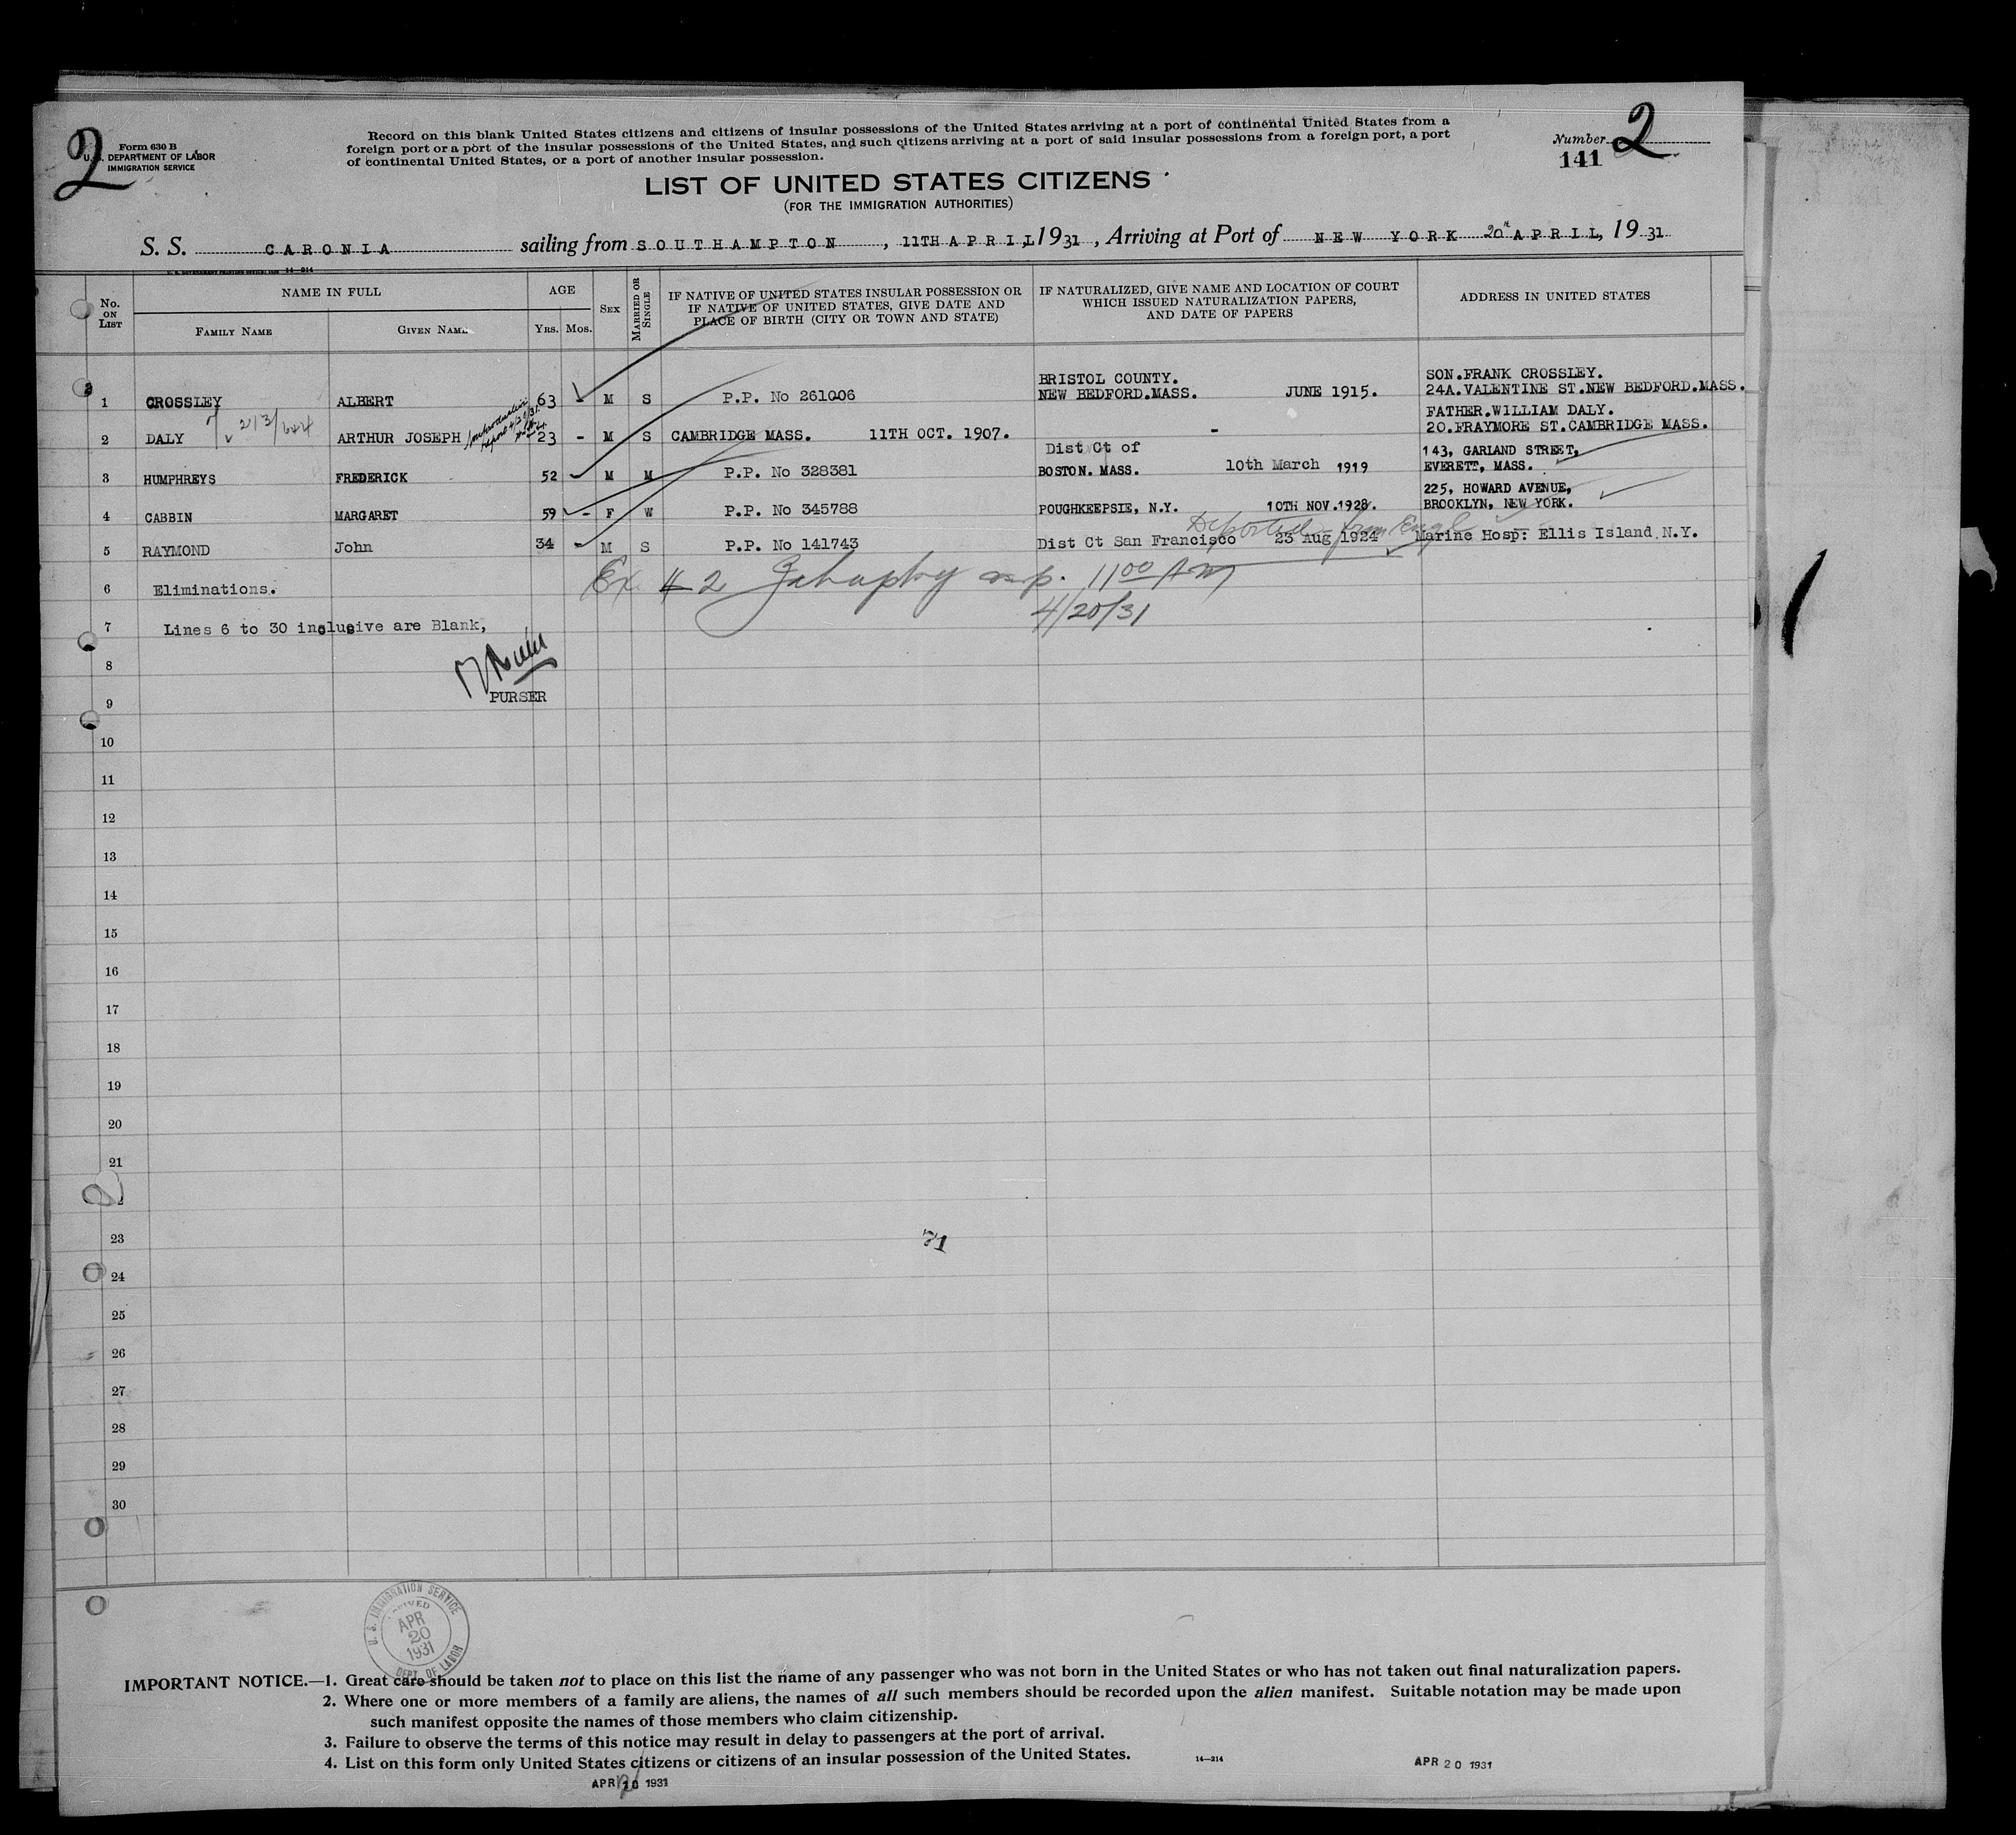 2
Form 630 B
U. S. DEPARTMENT OF LABOR
IMMIGRATION SERVICE
Record on this blank United States citizens and citizens of insular possessions of the United States arriving at a port of continental United States from a
foreign port or a port of the insular possessions of the United States, and such citizens arriving at a port of said insular possessions from a foreign port, a port
of continental United States, or a port of another insular possession.
Number 2
141
LIST OF UNITED STATES CITIZENS
(FOR THE IMMIGRATION AUTHORITIES)
S. S. CARONIA sailing from SOUTHAMPTON, 11TH APRIL, 1931, Arriving at Port of NEW YORK 20th APRIL, 1931
14—214
No. ON LIST
NAME IN FULL
FAMILY NAME
GIVEN NAME
AGE
YRS. MOS.
SEX
MARRIED OR SINGLE
IF NATIVE OF UNITED STATES INSULAR POSSESSION OR
IF NATIVE OF UNITED STATES, GIVE DATE AND
PLACE OF BIRTH (CITY OR TOWN AND STATE)
IF NATURALIZED, GIVE NAME AND LOCATION OF COURT
WHICH ISSUED NATURALIZATION PAPERS,
AND DATE OF PAPERS
ADDRESS IN UNITED STATES
BRISTOL COUNTY. SON.FRANK CROSSLEY.
1 CROSSLEY ALBERT 63 - M S P.P. No 261006 NEW BEDFORD.MASS. JUNE 1915. 24A.VALENTINE ST.NEW BEDFORD.MASS.
213/644 FATHER.WILLIAM DALY.
2 DALY ARTHUR JOSEPH 23 - M S CAMBRIDGE MASS. 11TH OCT. 1907. - 20.FRAYMORE ST.CAMBRIDGE MASS.
Dist Ct of 143, GARLAND STREET,
3 HUMPHREYS FREDERICK 52 M M P.P. No 328381 BOSTON. MASS. 10th March 1919 EVERETT, MASS.
225, HOWARD AVENUE,
4 CABBIN MARGARET 59 - F W P.P. No 345788 POUGHKEEPSIE, N.Y. 10TH NOV.1928. BROOKLYN, NEW YORK.
Deported from Engl
5 RAYMOND John 34 - M S P.P. No 141743 Dist Ct San Francisco 23 Aug 1924 Marine Hosp: Ellis Island.N.Y.
Ex # 2 insp. 11 00 AM
6 Eliminations.
4/20/31
7 Lines 6 to 30 inclusive are Blank,
8
PURSER
9
10
11
12
13
14
15
16
17
18
19
20
21
2
23
71
24
25
26
27
28
29
30
U. S. IMMIGRATION SERVICE
APR
20
1931
DEPT. OF LABOR
IMPORTANT NOTICE.—1. Great care should be taken not to place on this list the name of any passenger who was not born in the United States or who has not taken out final naturalization papers.
2. Where one or more members of a family are aliens, the names of all such members should be recorded upon the alien manifest. Suitable notation may be made upon
such manifest opposite the names of those members who claim citizenship.
3. Failure to observe the terms of this notice may result in delay to passengers at the port of arrival.
4. List on this form only United States citizens or citizens of an insular possession of the United States.
14—214
APR 20 1931
APR 20 1931